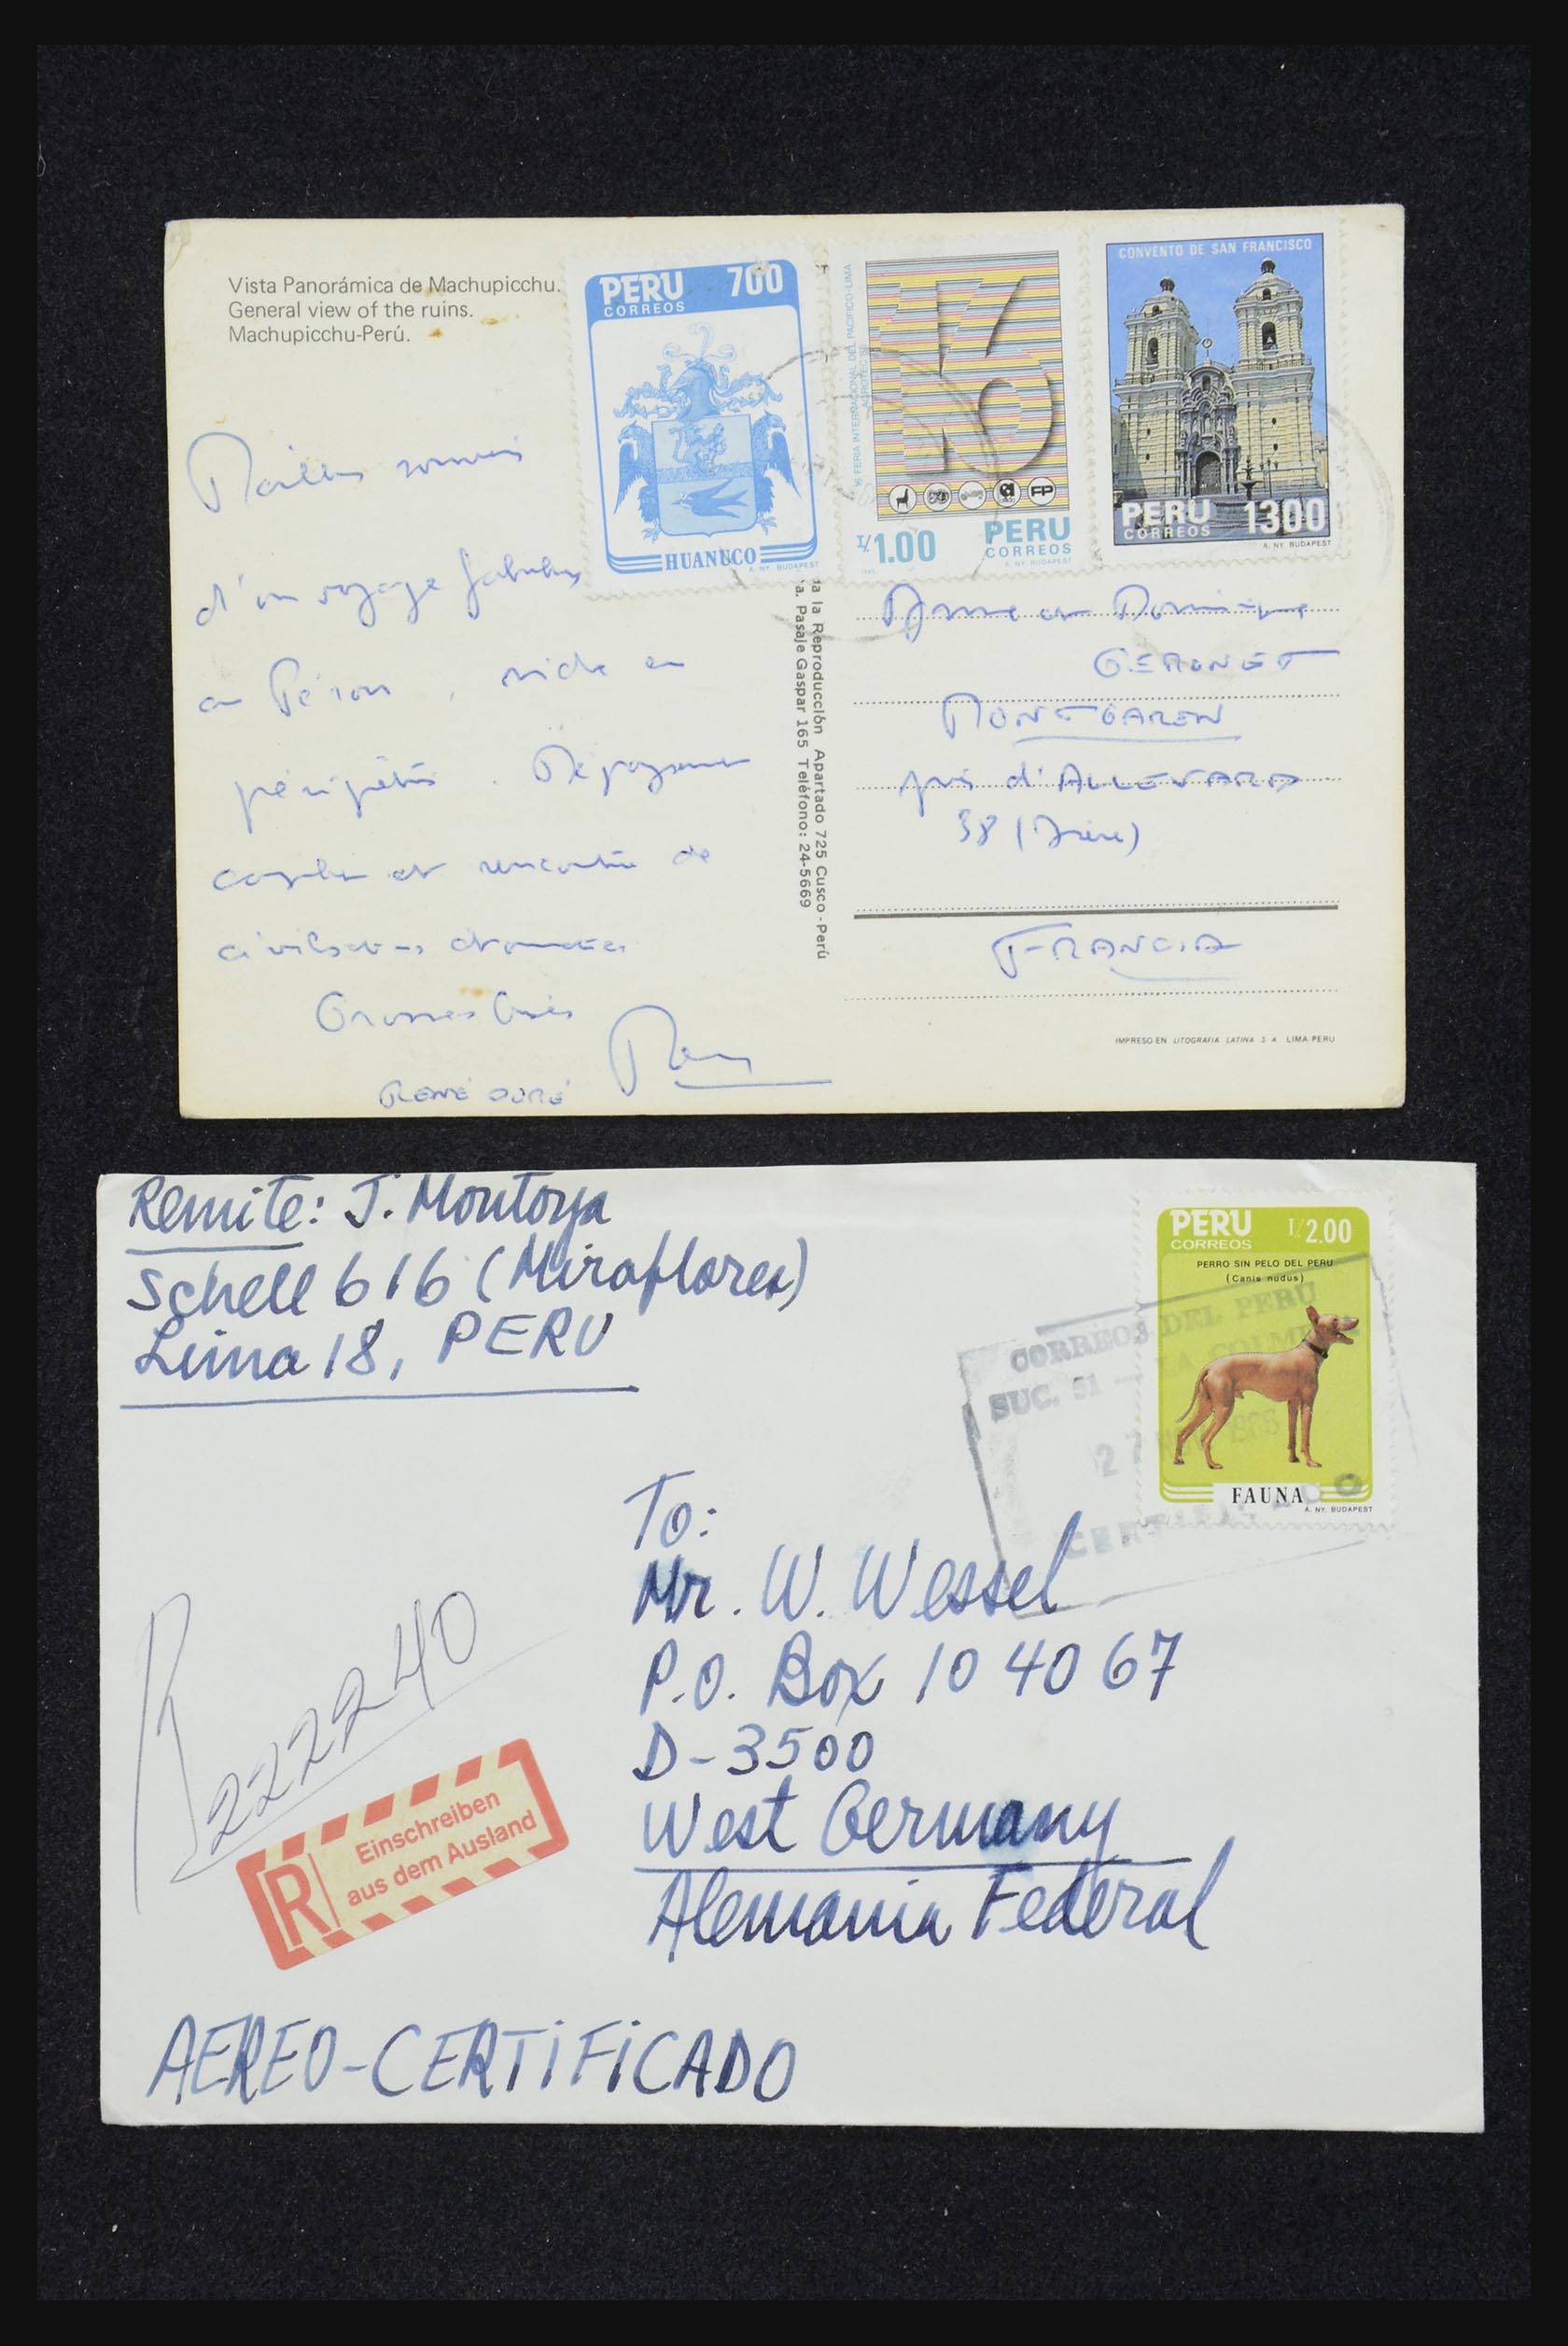 Vista Panorámica de Machupicchu.
General view of the ruins.
Machupicchu-Perú.
PERU 700
CORREOS
HUANUCO
A. NY. BUDAPEST
FERIA INTERNACIONAL DEL PACIFICO-LIMA
I/.1.00 PERU
CORREOS
A. NY. BUDAPEST
CONVENTO DE SAN FRANCISCO
PERU 1300
CORREOS
A. NY. BUDAPEST
d'un voyage fabuleux
au Pérou, riche en
péripéties. Dépaysement
complet et rencontre de
civilisations étonnantes
Grosses bises
René
RENÉ DORÉ
la Reproducción Apartado 725 Cusco - Perú
a. Pasaje Gaspar 165 Teléfono: 24-5669
près d'ALLEVARD
38 (Isère)
FRANCIA
IMPRESO EN LITOGRAFIA LATINA S A LIMA-PERU
Remite: J. Montoya
Schell 616 (Miraflores)
Lima 18, PERU
PERU I/.2.00
CORREOS
PERRO SIN PELO DEL PERU
(Canis nudus)
FAUNA
A. NY. BUDAPEST
CORREOS DEL PERU
SUC. 51 - LA COLMENA
27
CERTIFICADO
To:
Mr. W. Wessel
P.O. Box 10 40 67
D-3500
West Germany
Alemania Federal
R 222240
R Einschreiben
aus dem Ausland
AEREO-CERTIFICADO